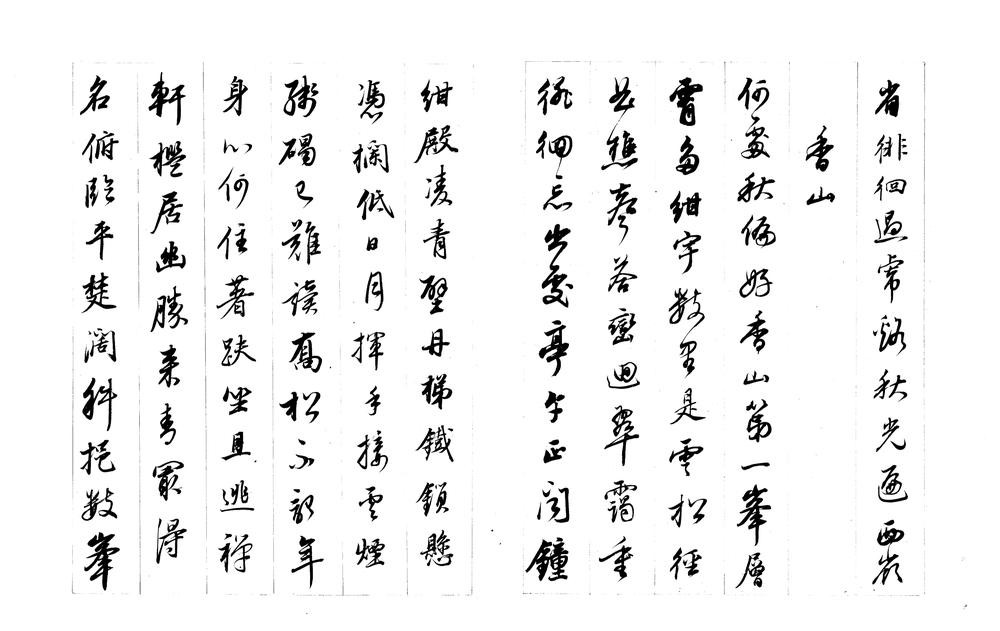 省徘徊過常秋光遍西嶺
香山
何處秋偏好香山第一峯層
霄多紺宇數里是雲松徑
曲樵聲答巒迴翠靄重
徘徊忘出處亭午正聞鐘
紺殿凌青壁丹梯鐵鎖懸
憑欄低日月揮手接雲煙
殘碣已難讀喬松不記年
身心何住著趺坐且逃禪
軒檻居幽勝来青最得
名俯臨平楚闊斜挹數峯